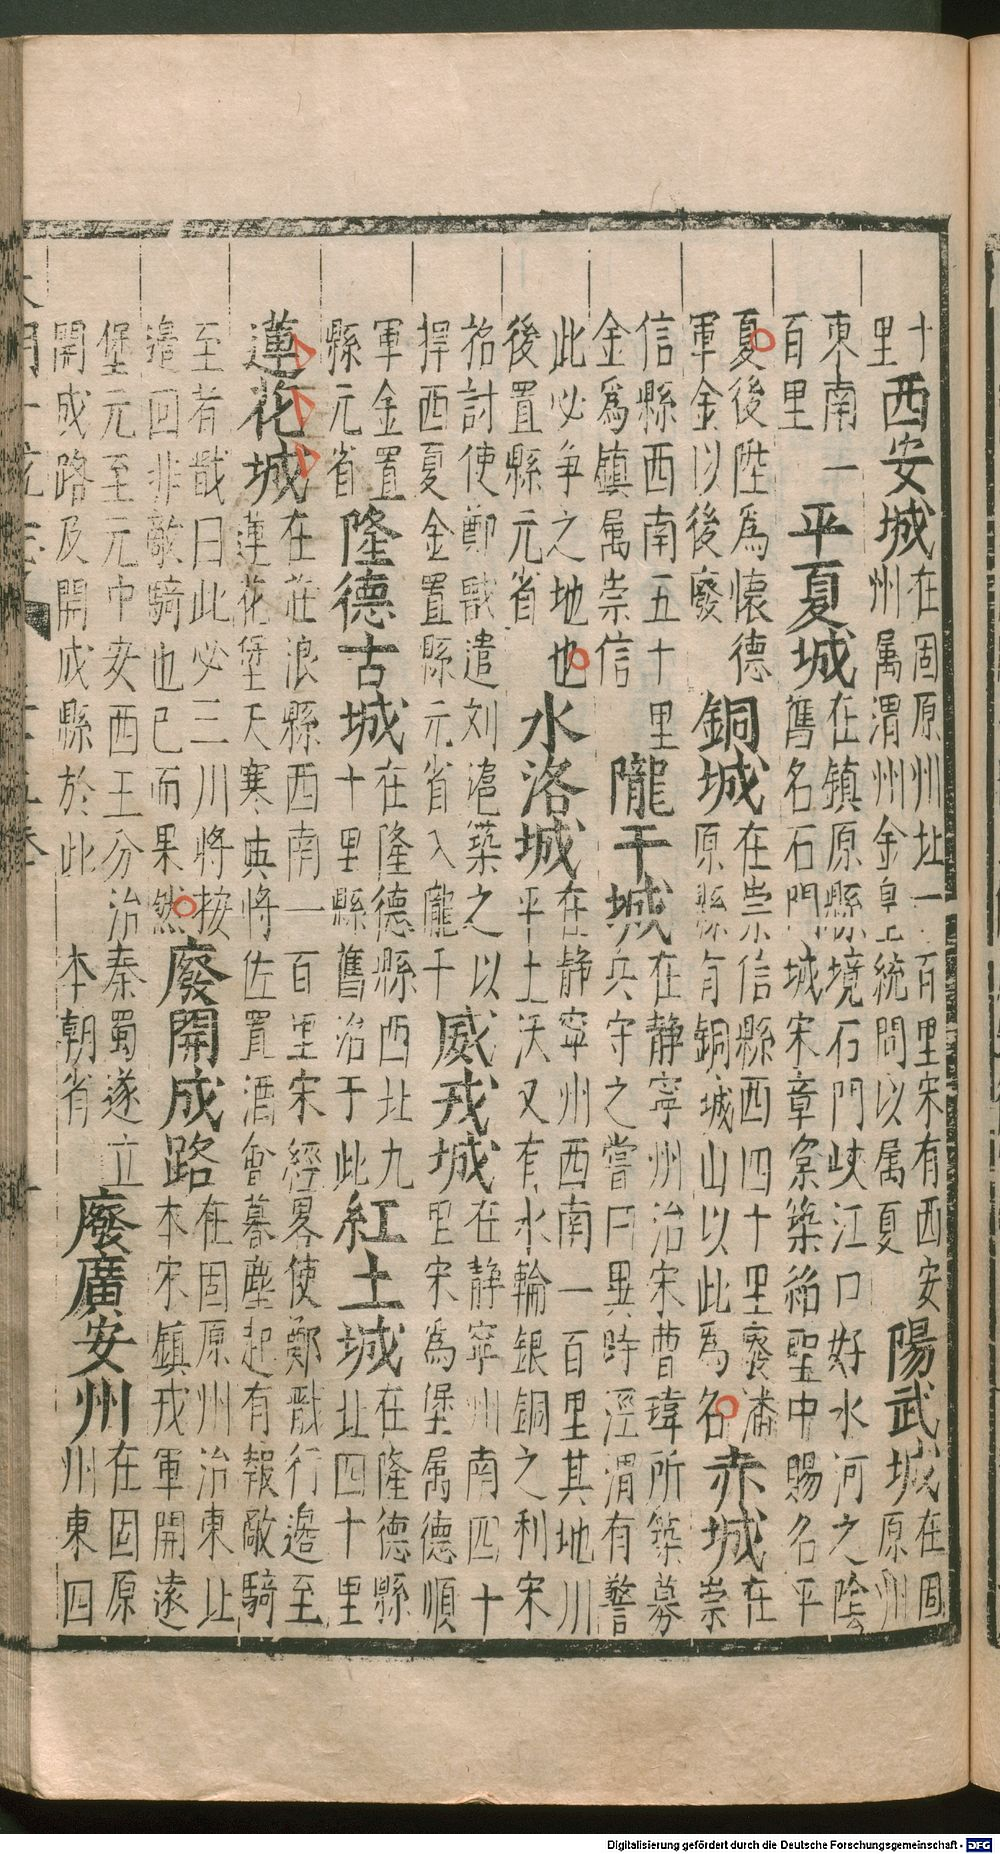 十里西安城在固原州北一百里宋有西安州属渭州金皇統間以属夏陽武城在固原州
東南一百里平夏城在鎮原縣境石門峡江口好水河之陰舊名石門城宋章楶築紹聖中賜名平
夏後陞爲懷德軍金以後廢銅城在崇信縣西四十里潘原縣有銅城山以此爲名赤城在崇
信縣西南五十里金爲鎮属崇信隴干城在静寧州治宋曹瑋所築募兵守之嘗曰異時涇渭有警
此必争之地也後置縣元省水洛城在静寧州西南一百里其地川平土沃又有水輪銀銅之利宋
招討使鄭戩遣刘滬築之以捍西夏金置縣元省入隴干威戎城在静寧州南四十里宋爲堡属德順
軍金置縣元省隆德古城在隆德縣西北九十里縣舊治于此紅土城在隆德縣北四十里
蓮花城在莊浪縣西南一百里宋經畧使鄭戩行邉至蓮花堡天寒與將佐置酒會暮塵起有報敵騎
至者戩曰此必三川將按邉回非敵騎也已而果然廢開成路在固原州治東北本宋鎮戎軍開遠
堡元至元中安西王分治秦蜀遂立開成路及開成縣於此本朝省廢廣安州在固原州東四
Digitalisierung gefördert durch die Deutsche Forschungsgemeinschaft - DFG